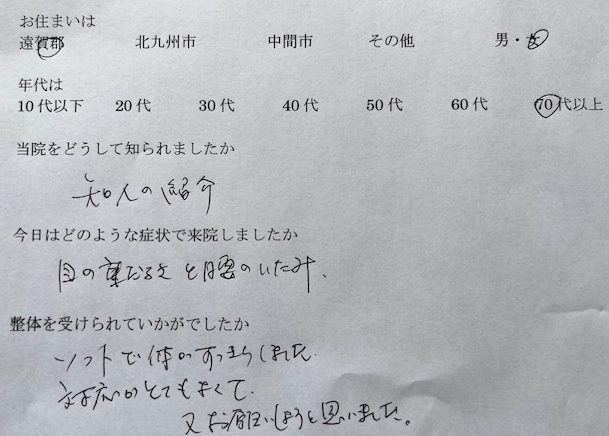 お住まいは
遠賀郡 北九州市 中間市 その他 男・女
年代は
10代以下 20代 30代 40代 50代 60代 70代以上
当院をどうして知られましたか
知人の紹介
今日はどのような症状で来院しましたか
目の重だるさと腰のいたみ、
整体を受けられていかがでしたか
ソフトで体がすっきりしました。
がとてもよくて、
又お願いしようと思いました。